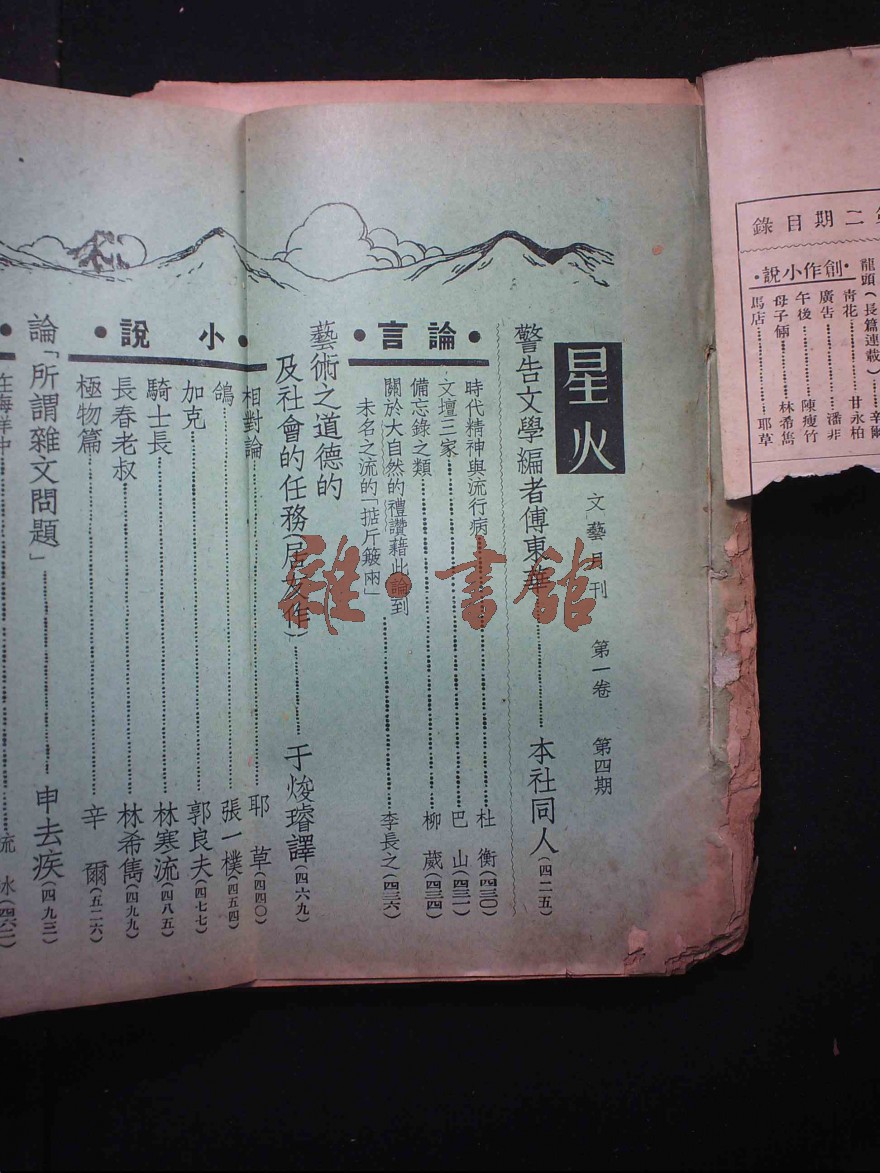 第二期目錄
龍頭(長篇連載)……辛爾
•創作小說•
青花……甘永柏
廣告……潘非
午後……陳瘦竹
母子倆……林希雋
馬店……耶草
星火
文藝月刊 第一卷 第四期
警告文學編者傅東華……本社同人(四二五)
•論言•
時代精神與流行病……杜衡(四三〇)
文壇三家……巴山(四三一)
備忘錄之類……柳葳(四三四)
關於大自然的禮讚藉此論到
未名之流的「掂斤簸兩」……李長之(四三六)
藝術之道德的
及社會的任務(居友作)……于煥璿譯(四六九)
•小說•
相對論……耶草(四四〇)
鴿……張一樸(四五四)
加克……郭良夫(四七七)
騎士長……林寒流(四八五)
長春老叔……林希雋(四九九)
極物篇……辛爾(五二六)
論「所謂雜文問題」……申去疾(四九三)
在海洋中……流水
雜•書館